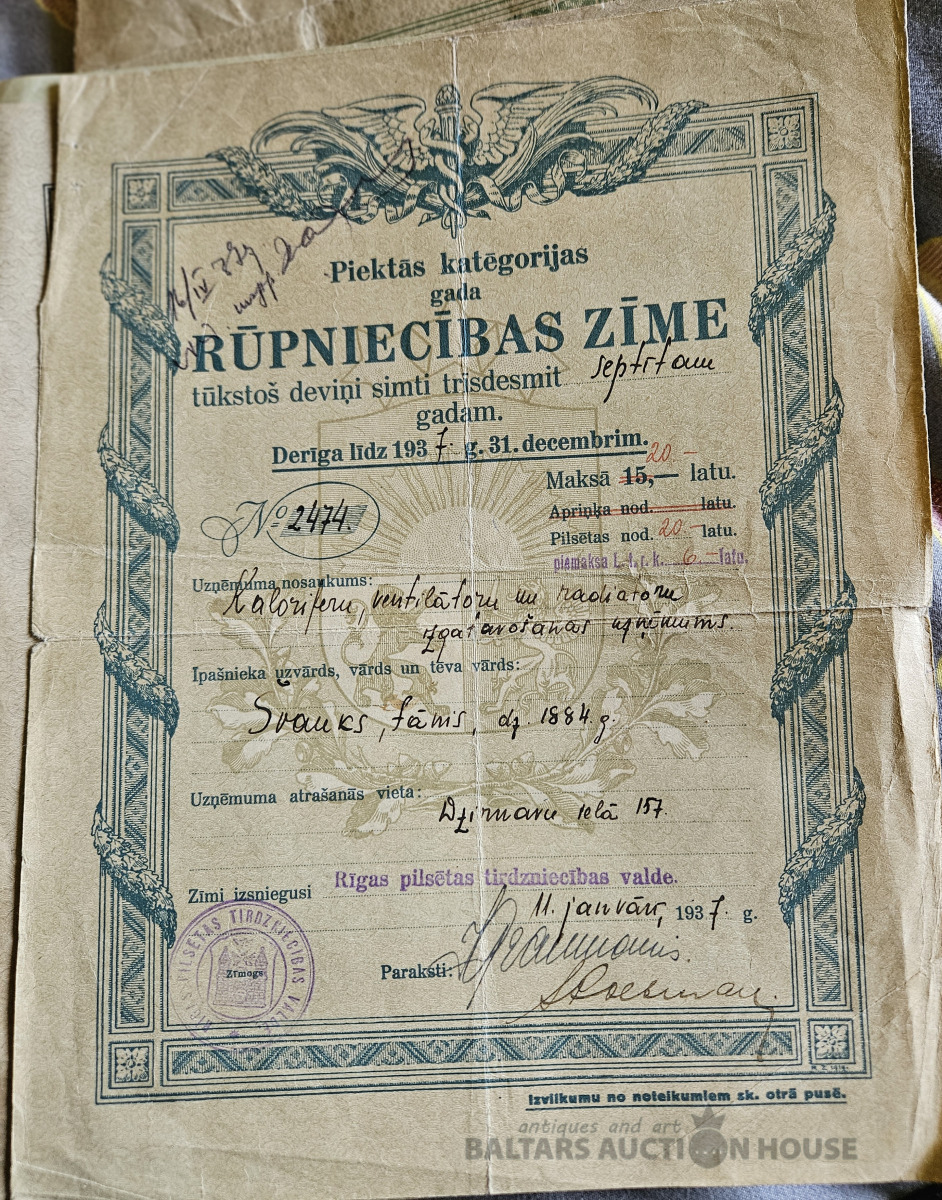 16/IV 37g
Piektās katēgorijas
gada
RŪPNIECĪBAS ZĪME
tūkstoš deviņi simti trīsdesmit septītam
gadam.
Derīga līdz 1937. g. 31. decembrim.
20-
Maksā 15,— latu.
№ 2474.
Apriņķa nod. latu.
Pilsētas nod. 20.- latu.
piemaksa L. t. r. k. 6.- latu.
Uzņēmuma nosaukums:
Kaloriferu, ventilātoru un radiatoru
izgatavošanas uzņēmums.
Īpašnieka uzvārds, vārds un tēva vārds:
Svauks, Jānis, dz. 1884. g.
Uzņēmuma atrašanās vieta:
Dzirnavu ielā 157.
Zīmi izsniegusi Rīgas pilsētas tirdzniecības valde.
11. janvārī, 1937. g.
RĪGAS PILSĒTAS TIRDZNIECĪBAS VALDE
Zīmogs
Paraksti:
Izvilkumu no noteikumiem sk. otrā pusē.
antiques and art
BALTARS AUCTION HOUSE